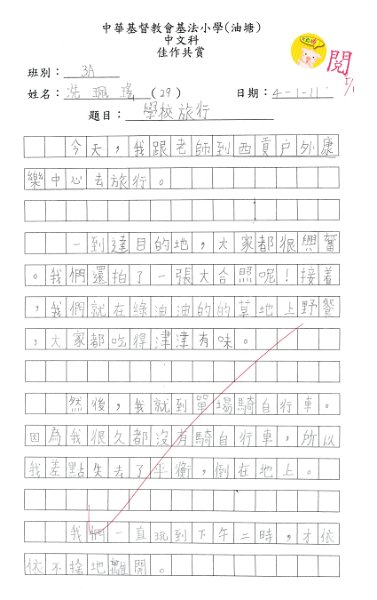 中華基督教會基法小學(油塘)
中文科
佳作共賞
閱
班別： 3A
姓名： 冼珮瑤 (29) 日期： 4-1-11
題目： 學校旅行
今天，我跟老師到西貢户外康
樂中心去旅行。
一到達目的地，大家都很興奮
。我們還拍了一張大合照呢！接着
，我們就在綠油油的的草地上野餐
，大家都吃得津津有味。
然後，我就到單場騎自行車。
因為我很久都沒有騎自行車，所以
我差點失去了平衡，倒在地上。
我們一直玩到下午二時，才依
依不捨地離開。